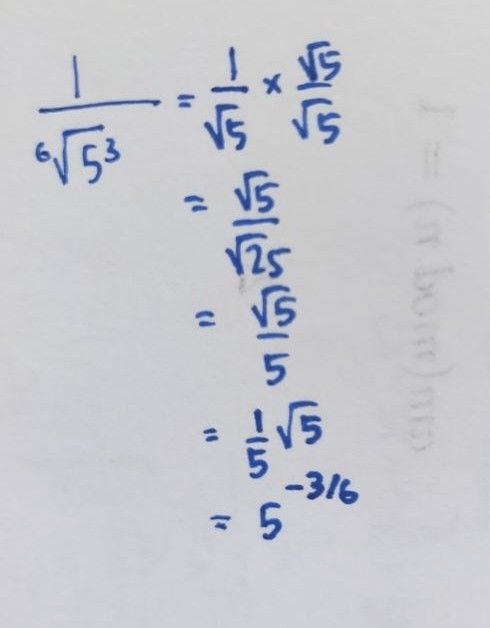 1/⁶√5³ = 1/√5 × √5/√5
= √5/√25
= √5/5
= 1/5 √5
= 5^(-3/6)